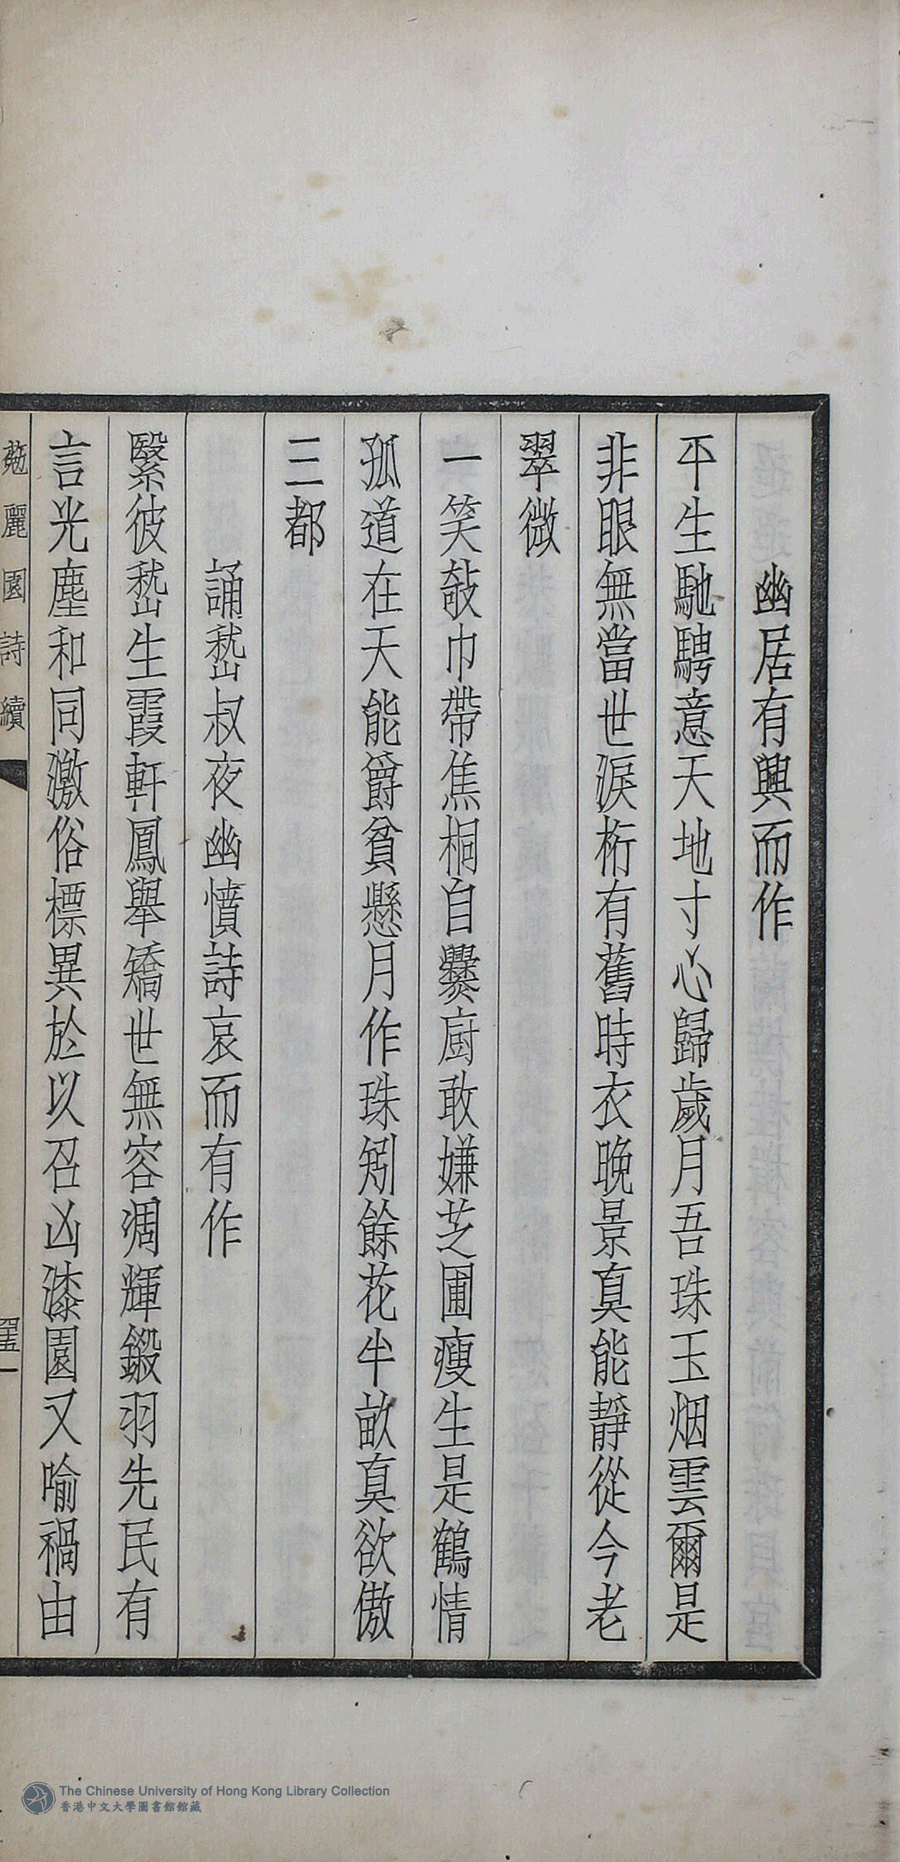 幽居有興而作
平生馳騁意天地寸心歸歲月吾珠玉烟雲爾是
非眼無當世淚桁有舊時衣晚景真能靜從今老
翠微
一笑攲巾帶焦桐自爨廚敢嫌芝圃瘦生是鶴情
孤道在天能爵貧懸月作珠剜餘花半畝真欲傲
三都
誦嵇叔夜幽憤詩哀而有作
繄彼嵇生霞軒鳳舉矯世無容凋輝鍛羽先民有
言光塵和同激俗標異於以召凶漆園又喻禍由
麗園詩續
The Chinese University of Hong Kong Library Collection
香港中文大學圖書館館藏